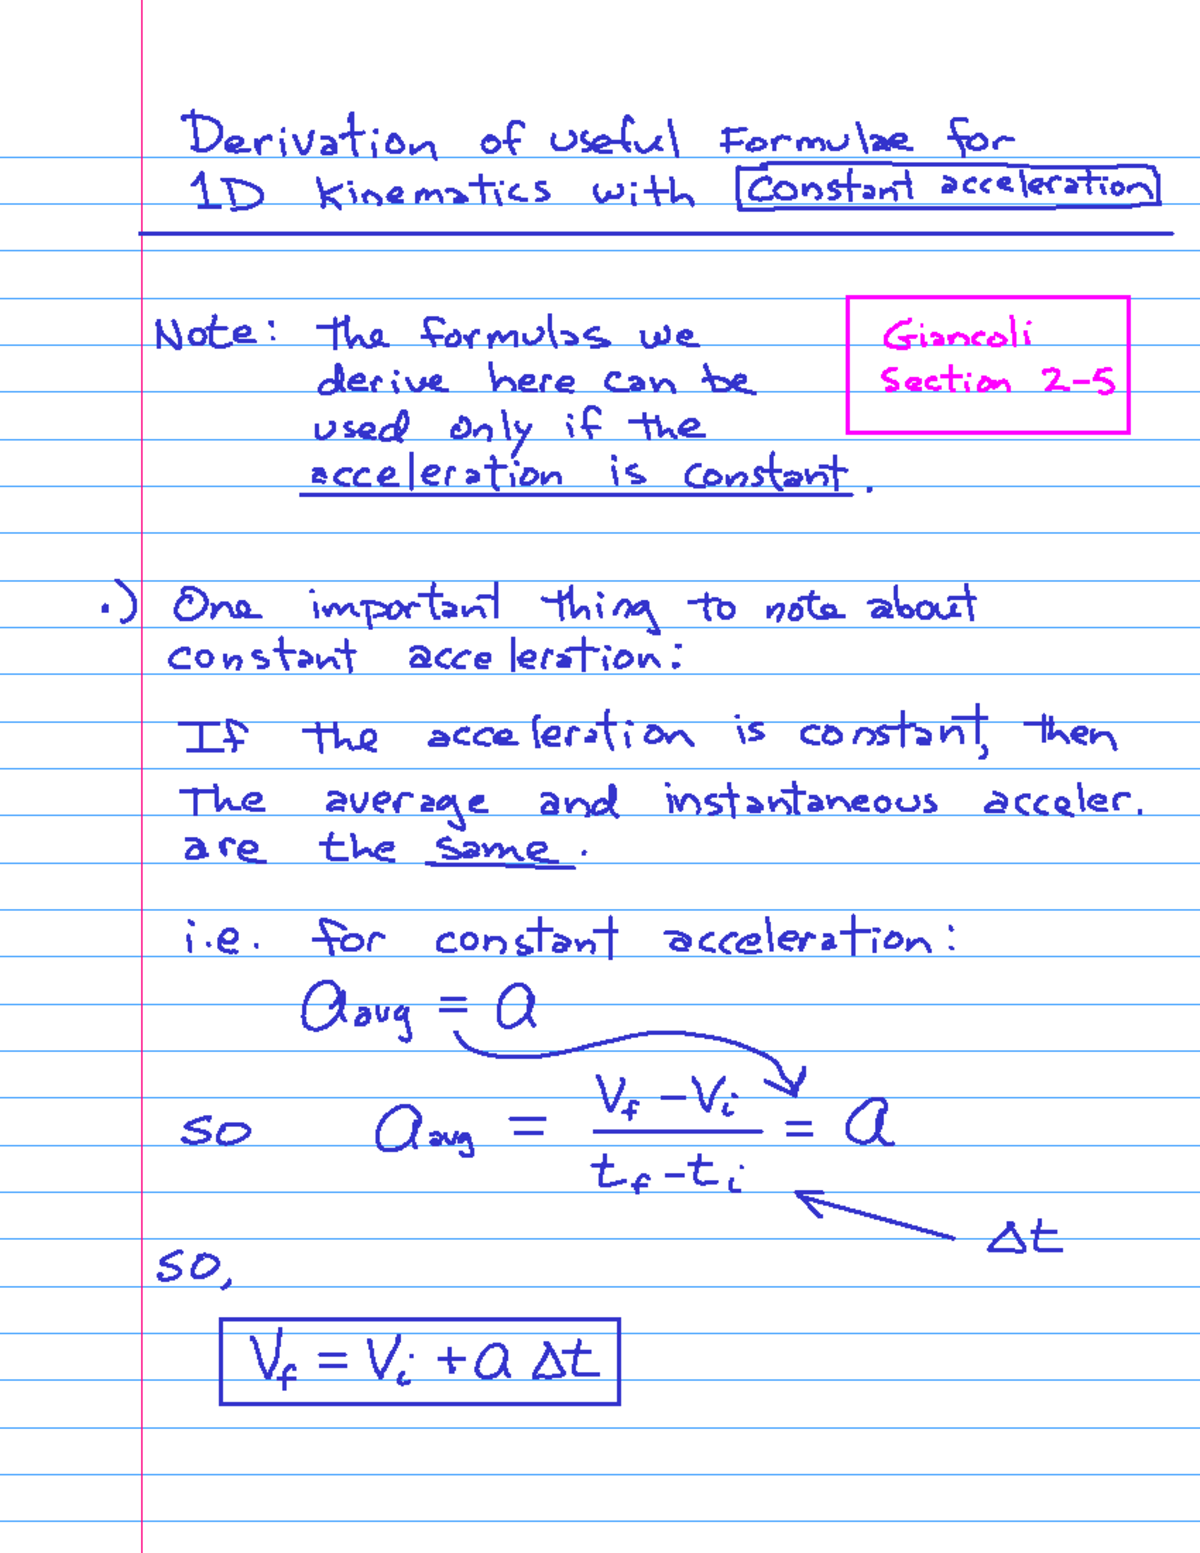 Derivation of useful Formulae for
1D Kinematics with constant acceleration
Note: the formulas we
derive here can be
used only if the
acceleration is constant.
Giancoli
Section 2-5
.) One important thing to note about
constant acceleration:
If the acceleration is constant, then
The average and instantaneous acceler.
are the same.
i.e. for constant acceleration:
a_avg = a
so a_avg = (V_f - V_i) / (t_f - t_i) = a
Δt
so,
V_f = V_i + a Δt